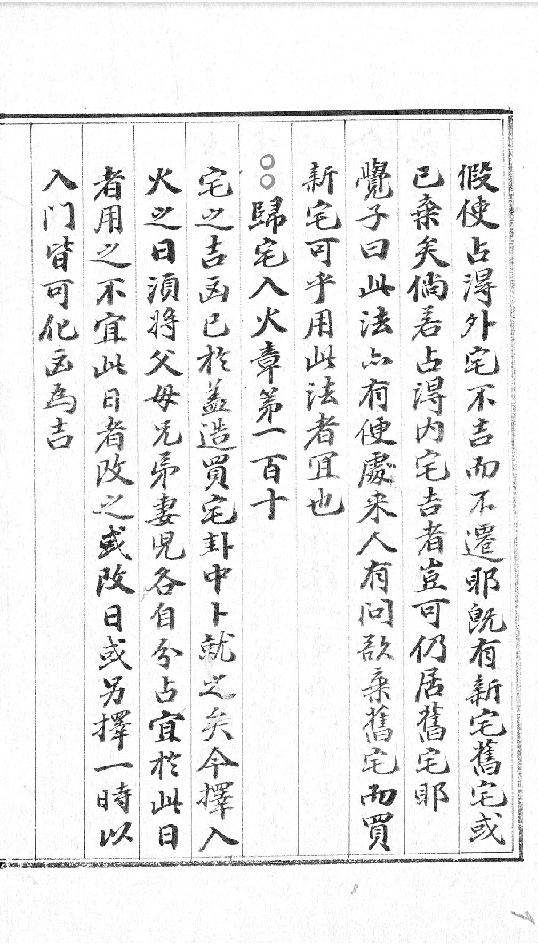 假使占得外宅不吉而不遷耶既有新宅舊宅或
已棄矣倘若占得內宅吉者豈可仍居舊宅耶
覺子曰此法亦有便處来人有问欲棄舊宅而買
新宅可乎用此法者冝也
○○歸宅入火章第一百十
宅之吉凶已於蓋造買宅卦中卜就之矣今擇入
火之日須將父母兄弟妻児各自分占宜於此日
者用之不宜此日者改之或改日或另擇一時以
入门皆可化凶爲吉